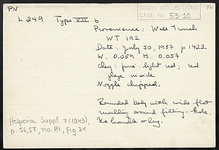 PN
L 249 Type XII b
CASE NO. 53-20
Provenance: West Tunnel
WT. 192
Date: July 30, 1937 p. 1422
W. 0.059 H. 0.037
Clay: fine light red; red
glaze inside
Nozzle chipped.
Rounded body with wide flat
moulding around filling-hole.
No handle or lug.
Hesperia Suppl. 7 (1943)
p. 56, 57, no. 81, Fig 24